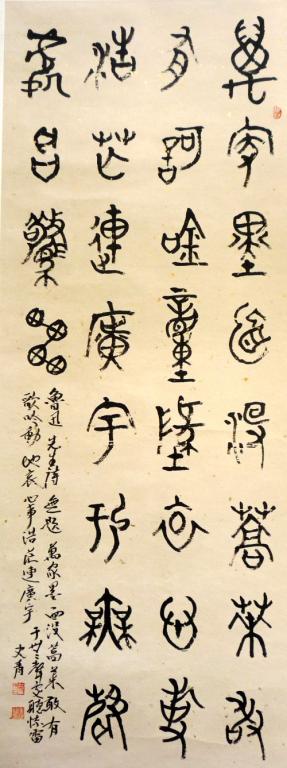 萬家墨面沒蒿萊敢
有訶唫動地哀心事
浩茫連廣宇於無聲
處聽驚雷
魯迅先生詩無題萬家墨面沒蒿萊敢有
歌吟動地哀心事浩茫連廣宇
于無聲處聽驚雷